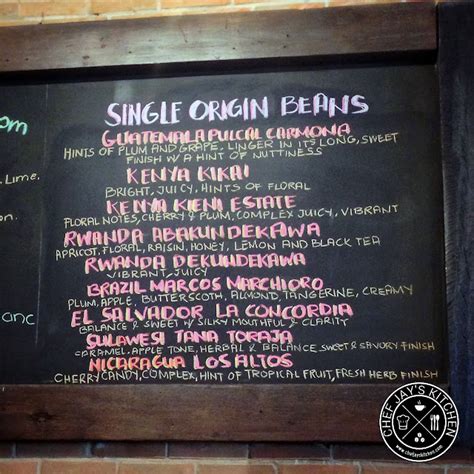 SINGLE ORIGIN BEANS
GUATEMALA PULCAL CARMONA
HINTS OF PLUM AND GRAPE, LINGER IN ITS LONG, SWEET
FINISH W/ A HINT OF NUTTINESS
KENYA KIKAI
BRIGHT, JUICY, HINTS OF FLORAL
KENYA KIENI ESTATE
FLORAL NOTES, CHERRY & PLUM, COMPLEX JUICY, VIBRANT
RWANDA ABAKUNDEKAWA
APRICOT, FLORAL, RAISIN, HONEY, LEMON AND BLACK TEA
RWANDA DEKUNDEKAWA
VIBRANT, JUICY
BRAZIL MARCOS MARCHIORO
PLUM, APPLE, BUTTERSCOTH, ALMOND, TANGERINE, CREAMY
EL SALVADOR LA CONCORDIA
BALANCE & SWEET W/ SILKY MOUTHFUL & CLARITY
SULAWESI TANA TORAJA
CARAMEL, APPLE TONE, HERBAL & BALANCE, SWEET & SAVORY FINISH
NICARAGUA LOS ALTOS
CHERRY CANDY, COMPLEX, HINT OF TROPICAL FRUIT, FRESH HERB FINISH
om
Lime.
on.
anc
CHEF JAY'S KITCHEN
www.chefjayskitchen.com